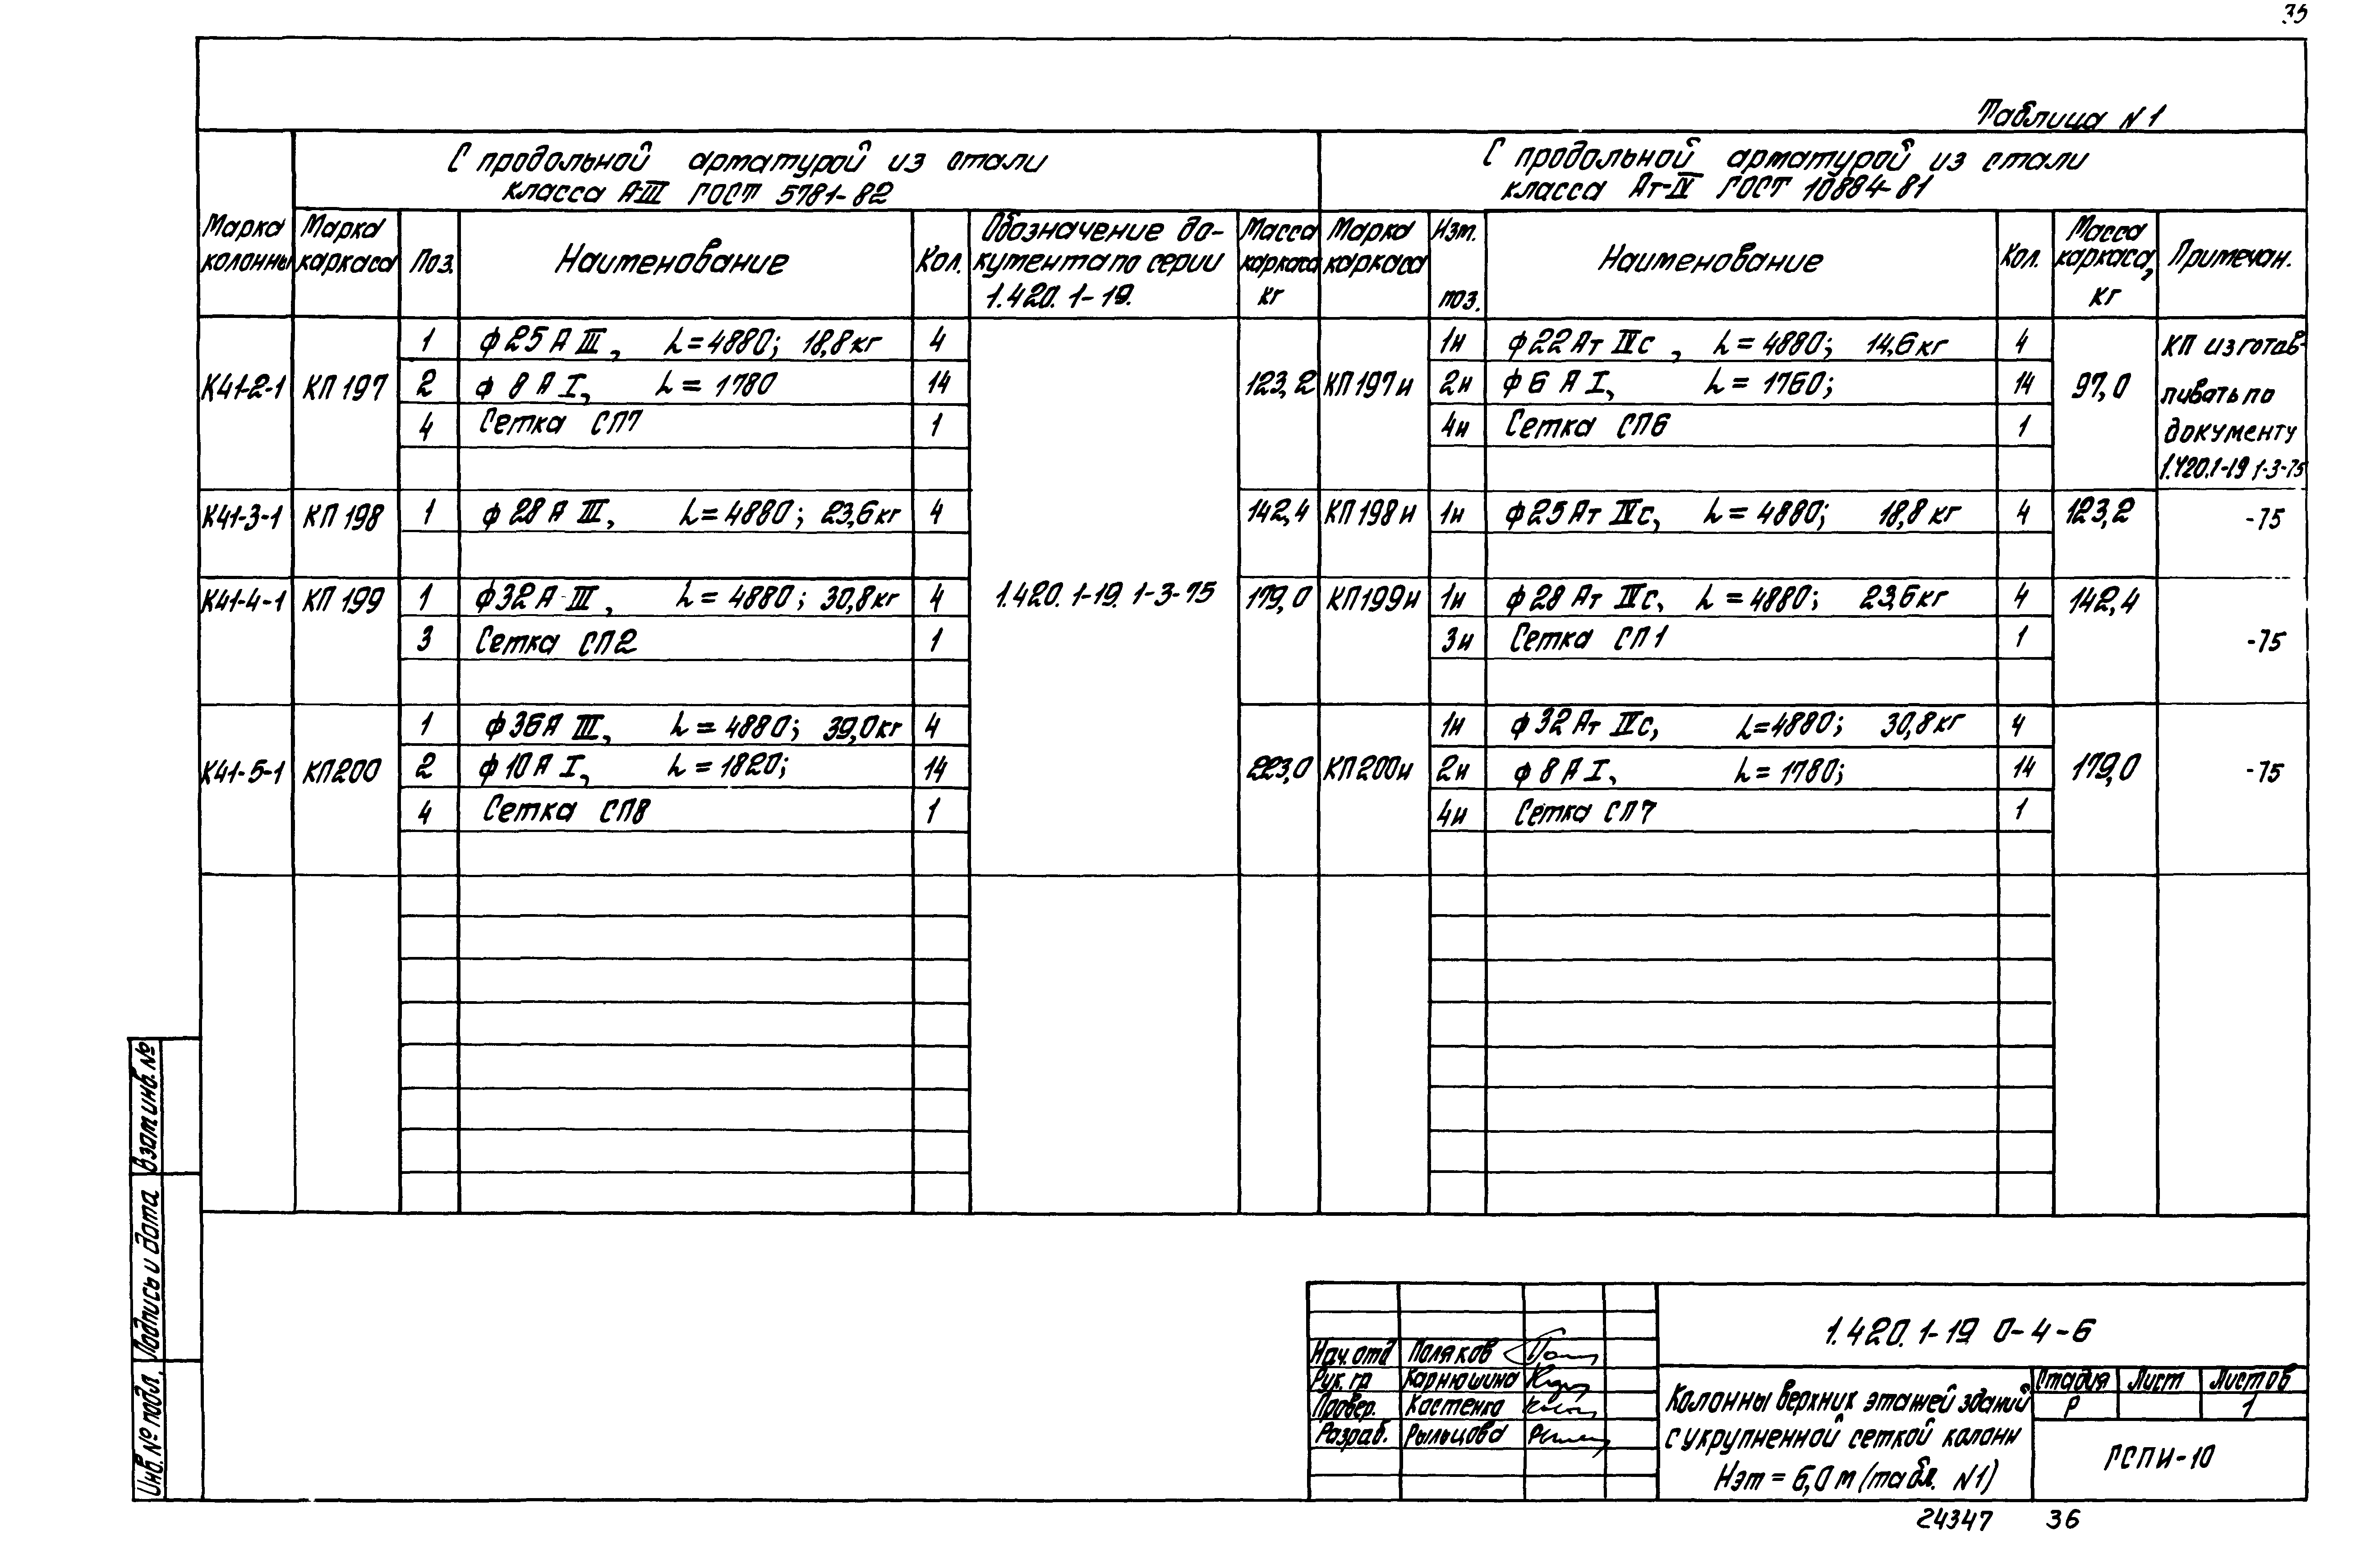 35
Таблица N1
С продольной арматурой из стали
класса А-III ГОСТ 5781-82
С продольной арматурой из стали
класса Ат-IV ГОСТ 10884-81
Марка колонны
Марка каркаса
Поз.
Наименование
Кол.
Обозначение до-
кумента по серии
1.420.1-19.
Масса каркаса кг
Марка каркаса
Изм. поз.
Наименование
Кол.
Масса каркаса, кг
Примечан.
К41-2-1 КП197 1 ϕ25 А III, L=4880; 18,8кг 4 123,2 КП197и 1и ϕ22 Ат IVс, L=4880; 14,6кг 4 97,0 КП изготав-
2 ϕ 8 А I, L=1780 14 2и ϕ6 А I, L=1760; 14 ливать по
4 Сетка СП7 1 4и Сетка СП6 1 документу
1.420.1-19 1-3-75
К41-3-1 КП198 1 ϕ28 А III, L=4880; 23,6кг 4 142,4 КП198и 1и ϕ25 Ат IVс, L=4880; 18,8кг 4 123,2 -75
К41-4-1 КП199 1 ϕ32 А-III, L=4880; 30,8кг 4 1.420.1-19.1-3-75 179,0 КП199и 1и ϕ28 Ат IVс, L=4880; 23,6кг 4 142,4
3 Сетка СП2 1 3и Сетка СП1 1 -75
1 ϕ36 А III, L=4880; 39,0кг 4 1и ϕ32 Ат IVс, L=4880; 30,8кг 4
К41-5-1 КП200 2 ϕ10 А I, L=1820; 14 223,0 КП200и 2и ϕ8 А I, L=1780; 14 179,0 -75
4 Сетка СП8 1 4и Сетка СП7 1
Взам инв. №
Подпись и дата
Инв. № подл.
1.420.1-19 0-4-6
Нач. отд Поляков
Рук. гр Карнюшина
Провер. Костенко
Разраб. Рыльцова
Колонны верхних этажей зданий
с укрупненной сеткой колонн
Нэт = 6,0 м (табл. N1)
Стадия Лист Листов
Р 1
ГСПИ-10
24347 36